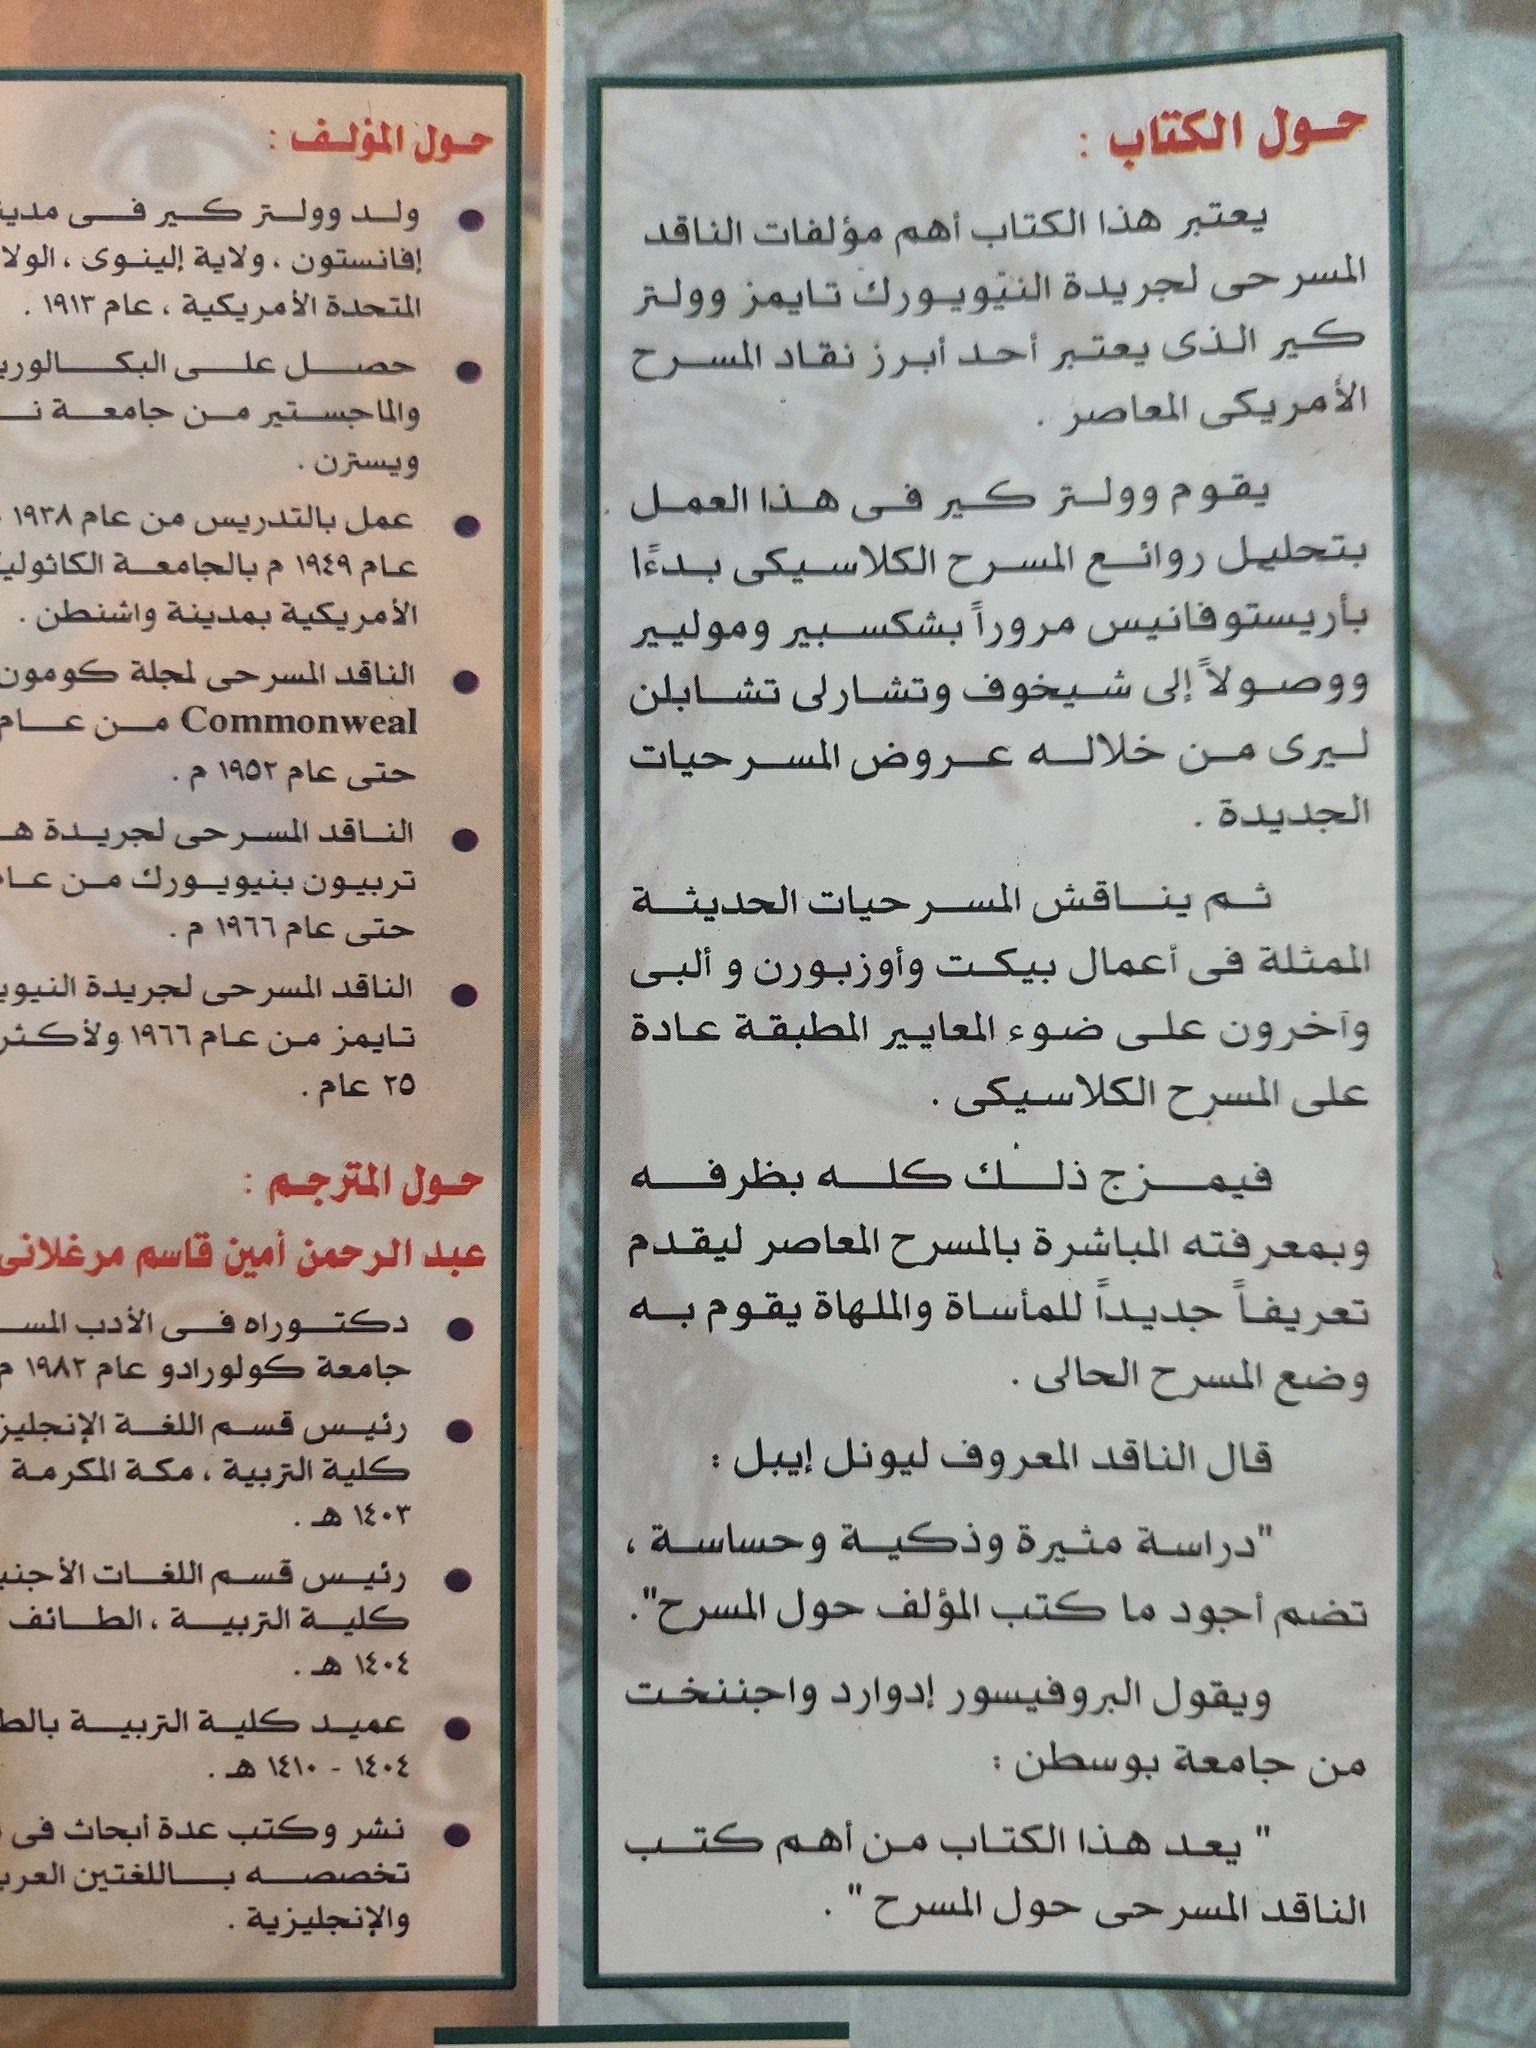 حول الكتاب :
يعتبر هذا الكتاب أهم مؤلفات الناقد
المسرحى لجريدة النيويورك تايمز وولتر
كير الذى يعتبر أحد أبرز نقاد المسرح
الأمريكى المعاصر .
يقوم وولتر كير فى هذا العمل
بتحليل روائع المسرح الكلاسيكى بدءًا
بأريستوفانيس مروراً بشكسبير وموليير
ووصولاً إلى شيخوف وتشارلى تشابلن
ليرى من خلاله عروض المسرحيات
الجديدة .
ثم يناقش المسرحيات الحديثة
الممثلة فى أعمال بيكت وأوزبورن و ألبى
وآخرون على ضوء المعايير المطبقة عادة
على المسرح الكلاسيكى .
فيمزج ذلك كله بظرفه
وبمعرفته المباشرة بالمسرح المعاصر ليقدم
تعريفاً جديداً للمأساة والملهاة يقوم به
وضع المسرح الحالى .
قال الناقد المعروف ليونل إيبل :
"دراسة مثيرة وذكية وحساسة ،
تضم أجود ما كتب المؤلف حول المسرح".
ويقول البروفيسور إدوارد واجننخت
من جامعة بوسطن :
" يعد هذا الكتاب من أهم كتب
الناقد المسرحى حول المسرح " .
حول المؤلف :
ولد وولتر كير فى
إفانستون ، ولاية إلينوى ،
المتحدة الأمريكية ، عام ١٩١٣ .
حصل على
والماجستير من جامعة
ويسترن .
عمل بالتدريس من عام ١٩٣٨
عام ١٩٤٩ م بالجامعة
الأمريكية بمدينة واشنطن .
الناقد المسرحى لمجلة
Commonweal من عام
حتى عام ١٩٥٢ م .
الناقد المسرحى لجريدة
تربيون بنيويورك من
حتى عام ١٩٦٦ م .
الناقد المسرحى لجريدة
تايمز من عام ١٩٦٦ ولأكثر
٢٥ عام .
حول المترجم :
عبد الرحمن أمين قاسم مرغلانى
دكتوراه فى الأدب
جامعة كولورادو عام ١٩٨٢ م
رئيس قسم اللغة
كلية التربية ، مكة المكرمة
١٤٠٣ هـ .
رئيس قسم اللغات
كلية التربية ، الطائف
١٤٠٤ هـ .
عميد كلية التربية
١٤٠٤ - ١٤١٠ هـ .
نشر وكتب عدة أبحاث فى
تخصصه باللغتين
والإنجليزية .